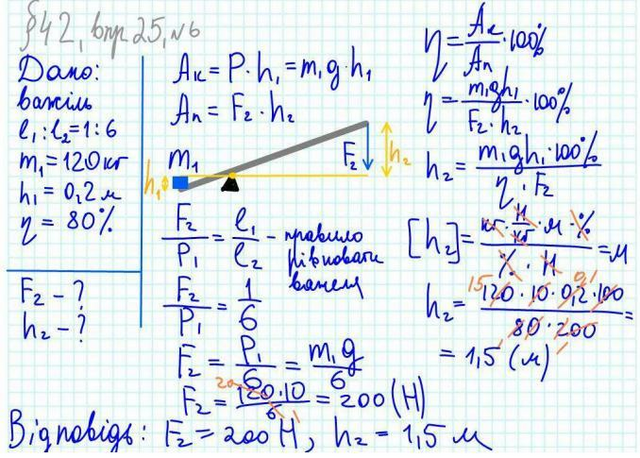 §42, впр 25, №6
Дано:
важіль
l₁:l₂=1:6
m₁=120кг
h₁=0,2м
η=80%
F₂-?
h₂-?
Aк=P·h₁=m₁g·h₁
Aп=F₂·h₂
m₁
h₁
F₂
h₂
F₂/P₁=l₁/l₂ - правило рівноваги важеля
F₂/P₁=1/6
F₂=P₁/6=m₁g/6
F₂=120·10/6=200(Н)
20
1
η=Aк/Aп·100%
η=m₁gh₁/F₂·h₂·100%
h₂=m₁gh₁·100%/η·F₂
[h₂]=кг·Н/кг·м·%/%·Н=м
15
0,1
h₂=120·10·0,2·100/80·200=
=1,5(м)
Відповідь: F₂=200Н, h₂=1,5м